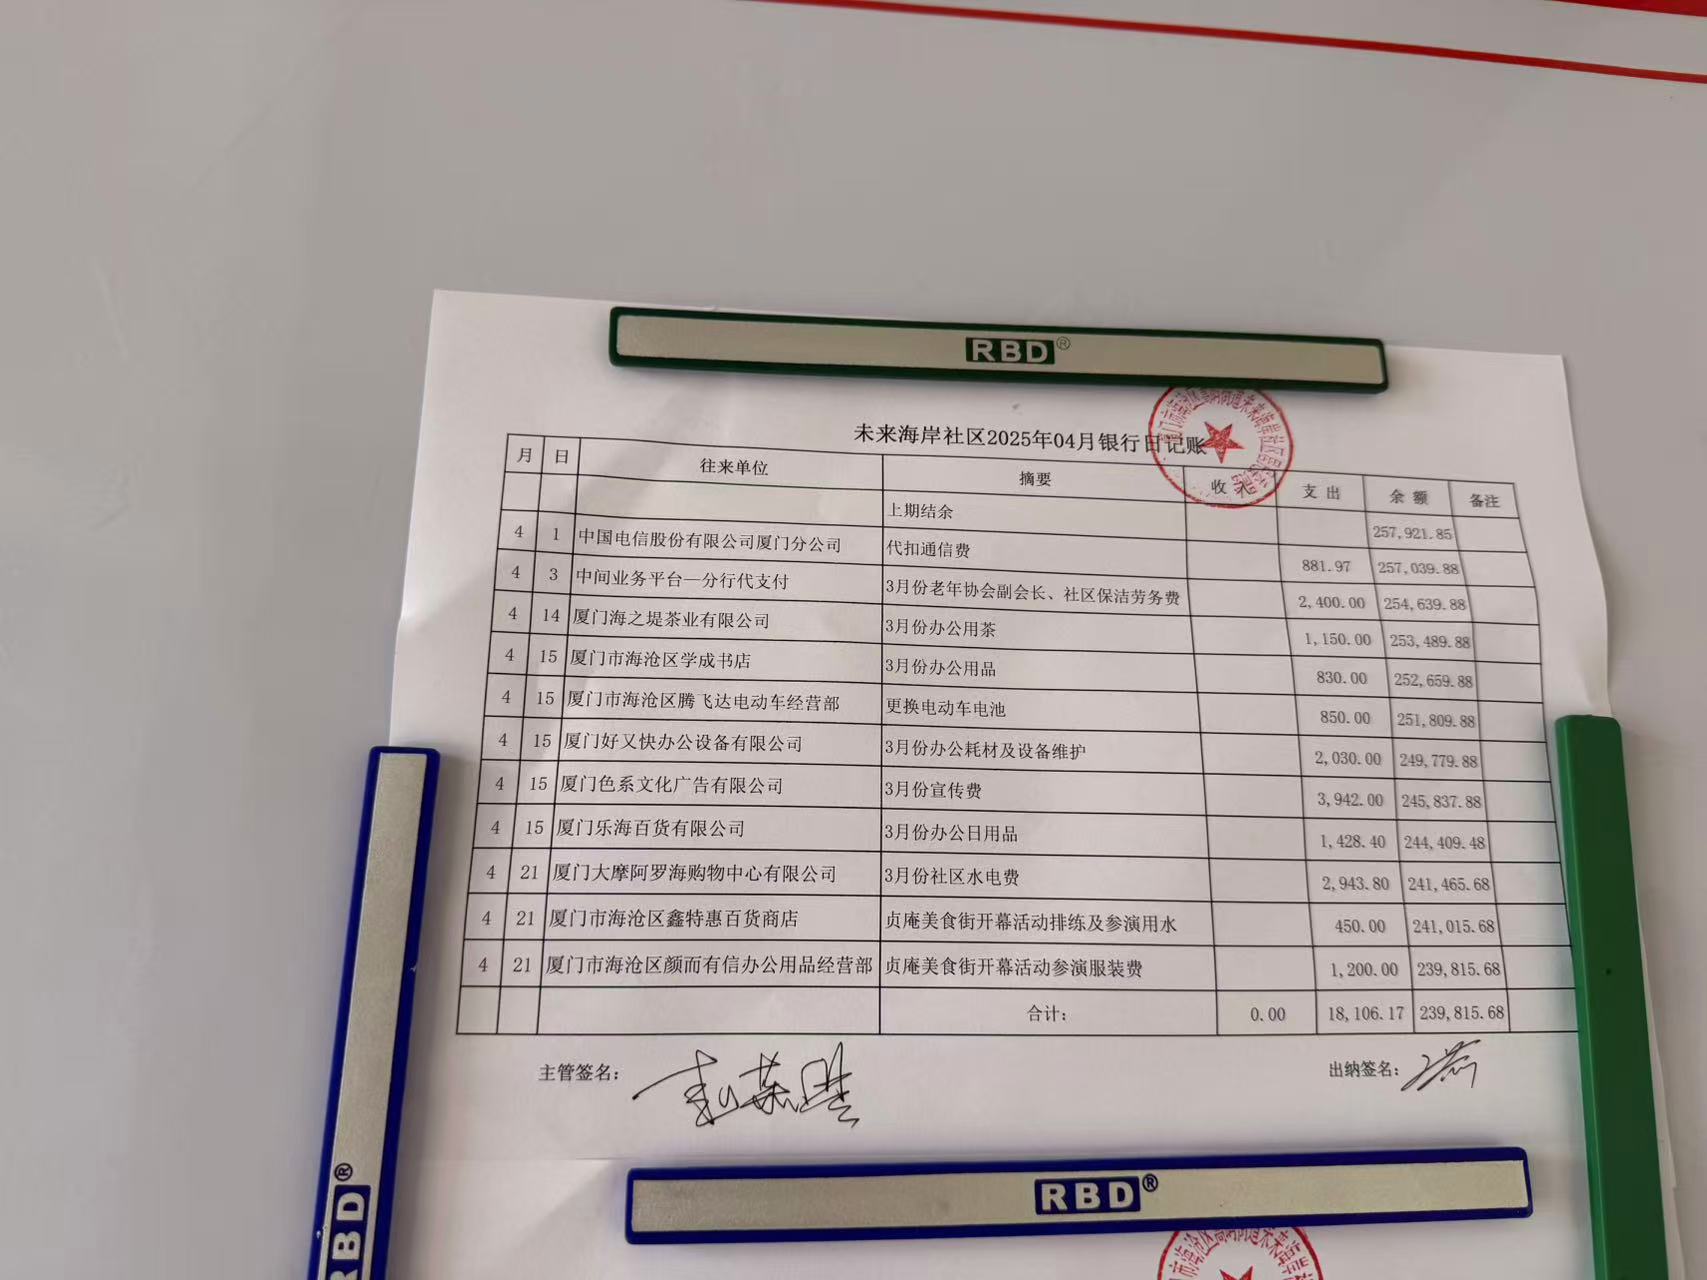 RBD®
未来海岸社区2025年04月银行日记账
月 日 往来单位 摘要 收入 支出 余额 备注
上期结余 257,921.85
4 1 中国电信股份有限公司厦门分公司 代扣通信费 881.97 257,039.88
4 3 中间业务平台—分行代支付 3月份老年协会副会长、社区保洁劳务费 2,400.00 254,639.88
4 14 厦门海之堤茶业有限公司 3月份办公用茶 1,150.00 253,489.88
4 15 厦门市海沧区学成书店 3月份办公用品 830.00 252,659.88
4 15 厦门市海沧区腾飞达电动车经营部 更换电动车电池 850.00 251,809.88
4 15 厦门好又快办公设备有限公司 3月份办公耗材及设备维护 2,030.00 249,779.88
4 15 厦门色系文化广告有限公司 3月份宣传费 3,942.00 245,837.88
4 15 厦门乐海百货有限公司 3月份办公日用品 1,428.40 244,409.48
4 21 厦门大摩阿罗海购物中心有限公司 3月份社区水电费 2,943.80 241,465.68
4 21 厦门市海沧区鑫特惠百货商店 贞庵美食街开幕活动排练及参演用水 450.00 241,015.68
4 21 厦门市海沧区颜而有信办公用品经营部 贞庵美食街开幕活动参演服装费 1,200.00 239,815.68
合计： 0.00 18,106.17 239,815.68
主管签名： 出纳签名：
RBD®
RBD®